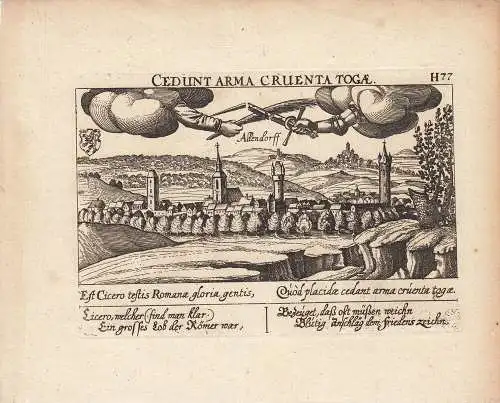 CEDUNT ARMA CRUENTA TOGÆ. H77
Allendorff
Est Cicero testis Romanæ gloria gentis,
Quòd placidæ cedant arma cruenta togæ.
Cicero, welcher (find man klar)
Ein grosses Lob der Römer war,
Bezeüget, daß oft müßen weichn
Blütig anschläg dem friedens zeichn.